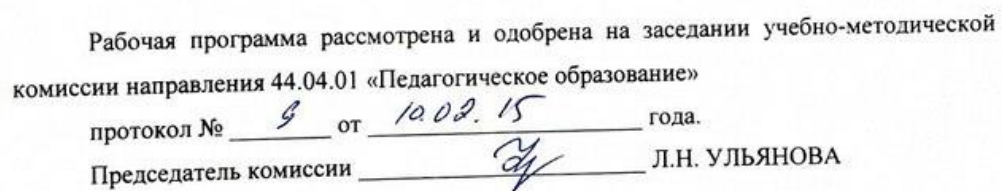 Рабочая программа рассмотрена и одобрена на заседании учебно-методической
комиссии направления 44.04.01 «Педагогическое образование»
протокол № от 10.02.15 года.
Председатель комиссии Л.Н. УЛЬЯНОВА